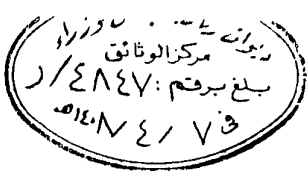 ديوان رياسة مجلس الوزراء
مركز الوثائق
بلغ برقم : ٤٨٤٧ / ر
في ٧ / ٤ / ١٤٠٨ هـ